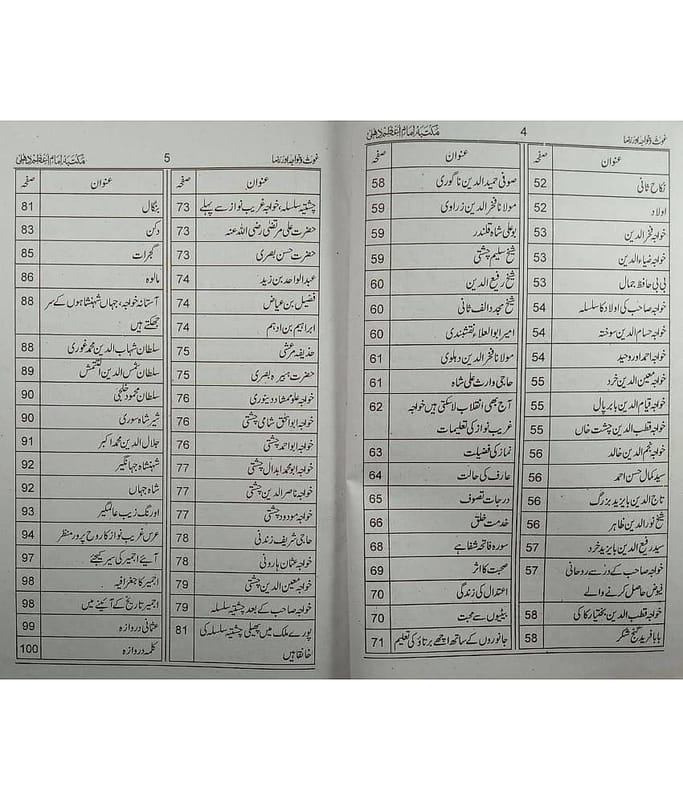 غوث، خواجہ اور رضا 4 مکتبہ امام اعظم دہلی
عنوان صفحہ
نکاح ثانی 52
اولاد 52
خواجہ فخر الدین 53
خواجہ ضیاء الدین 53
بی بی حافظ جمال 53
خواجہ صاحب کی اولاد کا سلسلہ 54
خواجہ حسام الدین سوختہ 54
خواجہ احمد اور وحید 54
خواجہ معین الدین خرد 55
خواجہ قیام الدین بابر پال 55
خواجہ قطب الدین چشت خاں 55
خواجہ نجم الدین خالد 56
سید کمال حسن احمد 56
تاج الدین بایزید بزرگ 56
شیخ نور الدین طاہر 56
سید رفیع الدین بایزید خرد 57
خواجہ صاحب کے در سے روحانی 57
فیوض حاصل کرنے والے
خواجہ قطب الدین بختیار کاکی 58
بابا فرید گنج شکر 58
عنوان صفحہ
صوفی حمید الدین ناگوری 58
مولانا فخر الدین زراوی 59
بوعلی شاہ قلندر 59
شیخ سلیم چشتی 59
شیخ رفیع الدین 60
شیخ مجدد الف ثانی 60
امیر ابو العلاء نقشبندی 60
مولانا فخر الدین دہلوی 61
حاجی وارث علی شاہ 61
آج بھی انقلاب لا سکتی ہیں خواجہ 62
غریب نواز کی تعلیمات
نماز کی فضیلت 63
عارف کی حالت 64
درجات تصوف 65
خدمت خلق 66
سورہ فاتحہ شفا ہے 68
صحبت کا اثر 69
اعتدال کی زندگی 70
بیٹیوں سے محبت 70
جانوروں کے ساتھ اچھے برتاؤ کی تعلیم 71
غوث، خواجہ اور رضا 5 مکتبہ امام اعظم دہلی
عنوان صفحہ
چشتیہ سلسلہ، خواجہ غریب نواز سے پہلے 73
حضرت علی مرتضیٰ رضی اللہ عنہ 73
حضرت حسن بصری 73
عبد الواحد بن زید 74
فضیل بن عیاض 74
ابراہیم بن ادہم 74
حذیفہ مرعشی 75
حضرت ہبیرہ بصری 75
خواجہ علو ممشاد دینوری 76
خواجہ ابو اسحٰق شامی چشتی 76
خواجہ ابو احمد چشتی 76
خواجہ ابو محمد ابدال چشتی 77
خواجہ ناصر الدین چشتی 77
خواجہ مودود چشتی 77
حاجی شریف زندنی 78
خواجہ عثمان ہارونی 78
خواجہ معین الدین چشتی 79
خواجہ صاحب کے بعد چشتیہ سلسلہ 79
پورے ملک میں پھیلی چشتیہ سلسلہ کی 81
خانقاہیں
عنوان صفحہ
بنگال 81
دکن 83
گجرات 85
مالوہ 86
آستانہ خواجہ، جہاں شہنشاہوں کے سر 88
جھکتے ہیں
سلطان شہاب الدین محمد غوری 88
سلطان شمس الدین التمش 89
سلطان محمود خلجی 90
شیر شاہ سوری 90
جلال الدین محمد اکبر 91
شہنشاہ جہانگیر 92
شاہ جہاں 92
اورنگ زیب عالمگیر 93
عرس غریب نواز کا روح پرور منظر 94
آیئے اجمیر کی سیر کیجئے 97
اجمیر کا جغرافیہ 98
اجمیر تاریخ کے آئینے میں 98
عثمانی دروازہ 99
کلمہ دروازہ 100